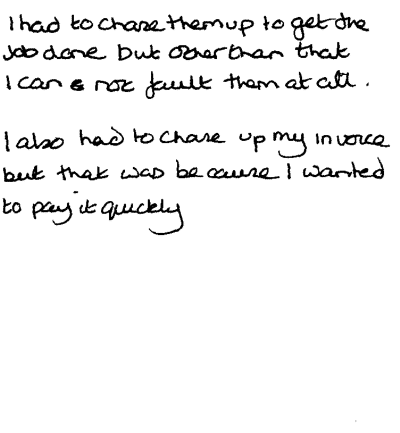 I had to chase them up to get the
job done but other than that
I can not fault them at all.
I also had to chase up my invoice
but that was because I wanted
to pay it quickly